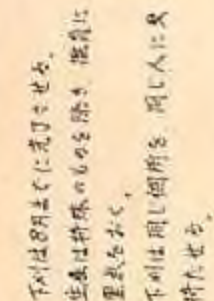 下刈は8月までに完了させる。
生産は特殊のものを除き 保育に
重点をおく。
下刈は同じ個所を 同じ人に受
持たせる。